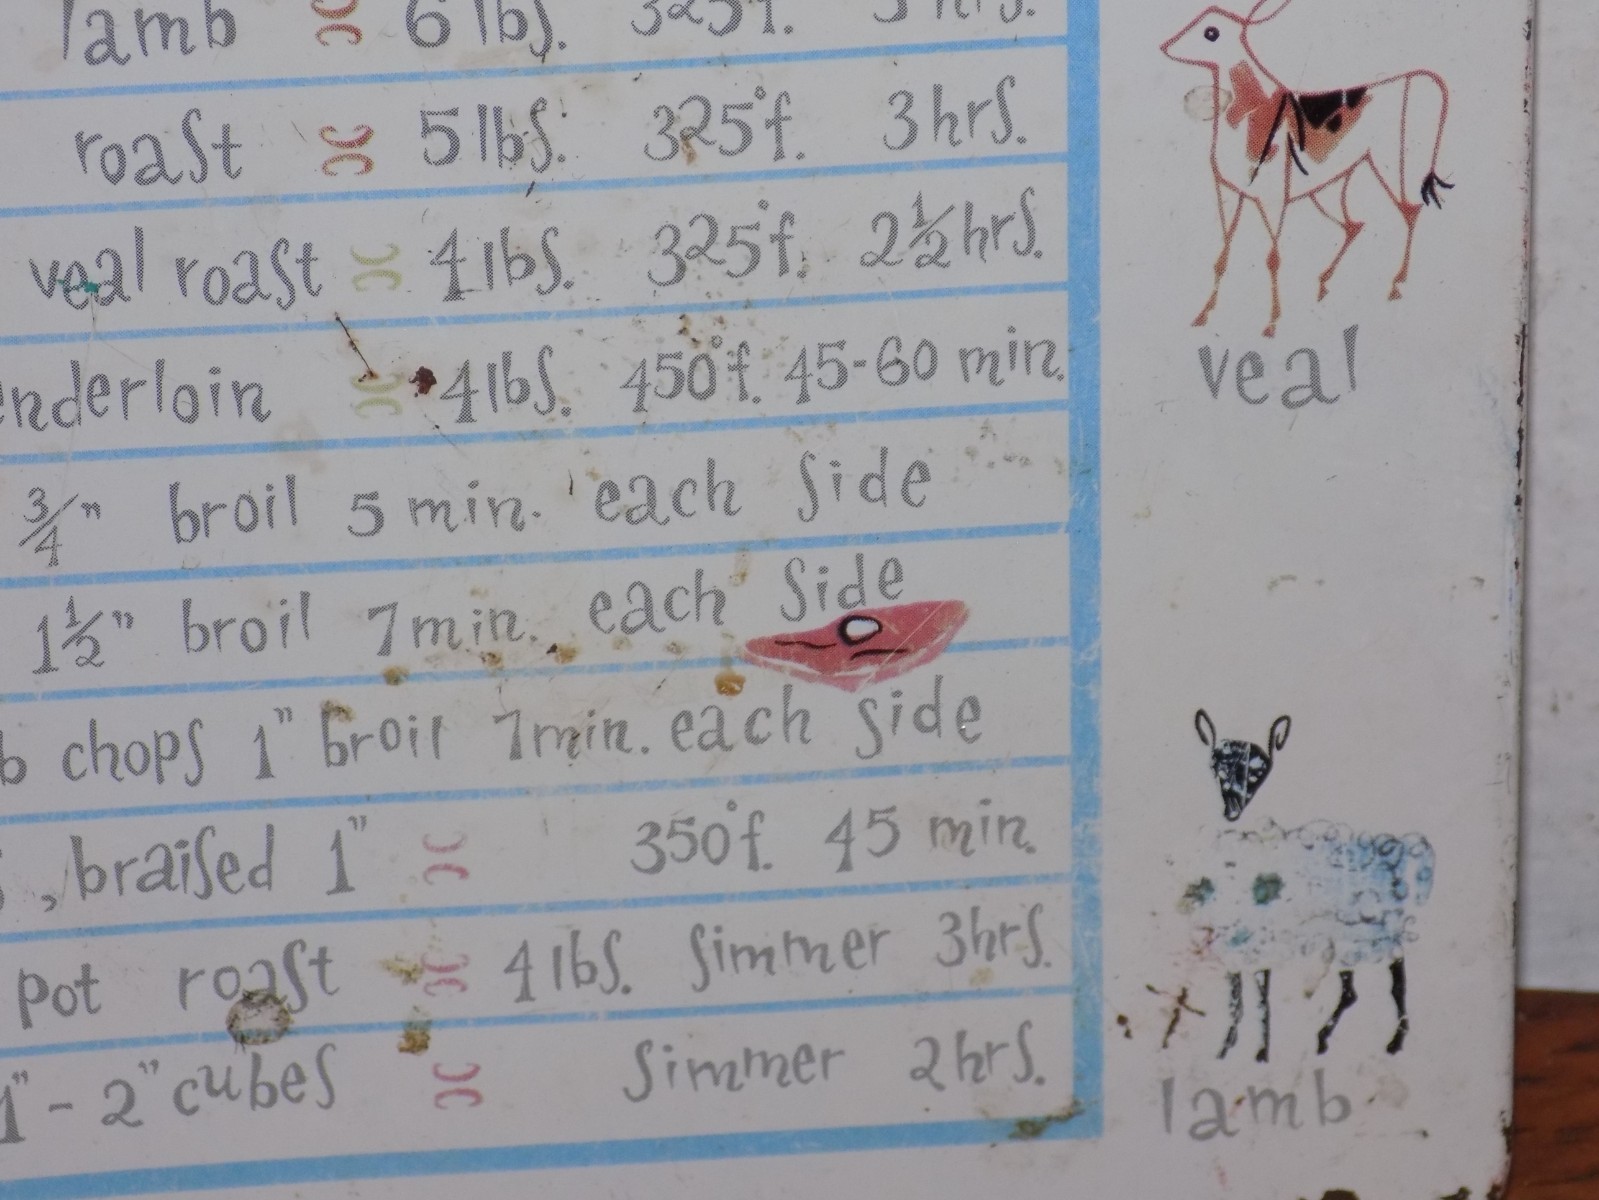 lamb 6 lbs. 325°f. 3 hrs.
roast 5 lbs. 325°f. 3 hrs.
veal roast 4 lbs. 325°f. 2½ hrs.
enderloin 4 lbs. 450°f. 45-60 min.
¾" broil 5 min. each side
1½" broil 7 min. each side
b chops 1" broil 7 min. each side
, braised 1" 350°f. 45 min.
pot roast 4 lbs. simmer 3 hrs.
1" - 2" cubes simmer 2 hrs.
veal
lamb